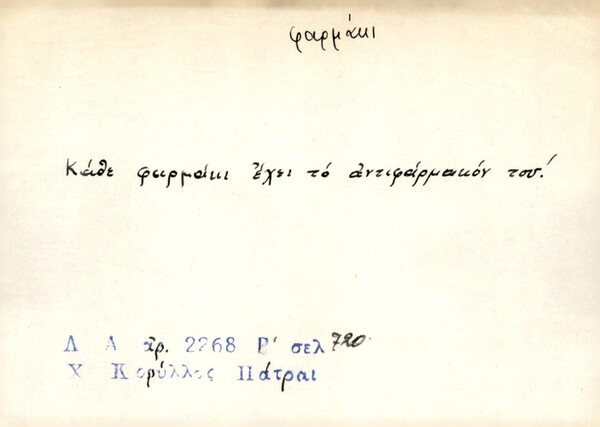 φαρμάκι
Κάθε φαρμάκι ἔχει τό ἀντιφάρμακόν του!
Λ Α ἀρ. 2268 Β' σελ 720
Χ Κορύλλος Πάτραι